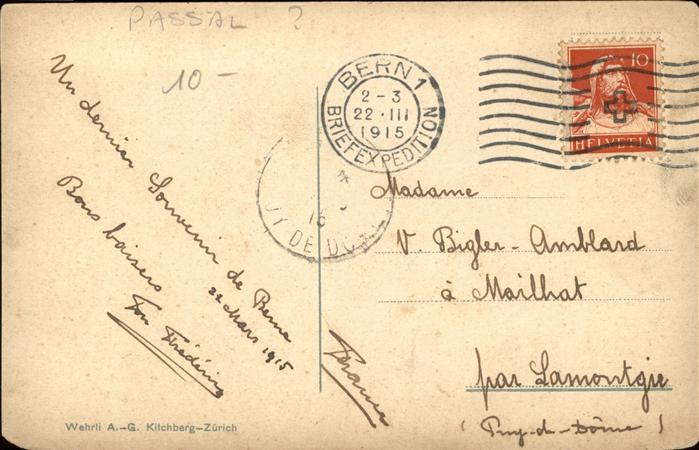 PASSAL ?
10 -
Un dernier Souvenir de Berne
22 Mars 1915
Bons baisers
Ton Frédéric
BERN 1
2-3
22.III
1915
BRIEFEXPEDITION
10
HELVETIA
*
15
UY DE DO
Madame
V. Bigler-Amblard
à Mailhat
par Lamontgie
(Puy-de-Dôme)
France
Wehrli A.-G. Kilchberg-Zürich